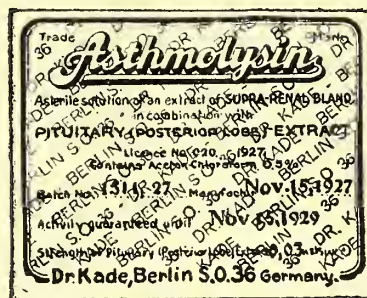 Trade Mark
Asthmolysin
A sterile solution of an extract of SUPRA-RENAL GLAND
in combination with
PITUITARY (POSTERIOR LOBE) EXTRACT
Licence No. 1927
Contains Aceton Chloroform 0,5%
Batch No. Manufactured Nov.15,1927
Activity guaranteed until Nov.15,1929
Strength of Pituitary (Posterior lobe)
Dr.Kade,Berlin S.O.36 Germany.